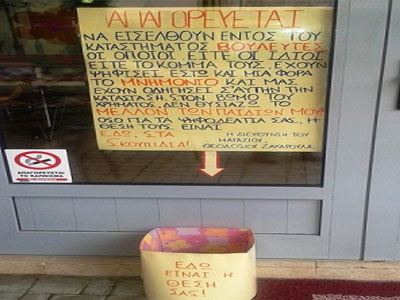 ΑΠΑΓΟΡΕΥΕΤΑΙ
ΝΑ ΕΙΣΕΛΘΟΥΝ ΕΝΤΟΣ ΤΟΥ
ΚΑΤΑΣΤΗΜΑΤΟΣ ΒΟΥΛΕΥΤΕΣ
ΟΙ ΟΠΟΙΟΙ ΕΙΤΕ ΟΙ ΙΔΙΟΙ
ΕΙΤΕ ΤΟ ΚΟΜΜΑ ΤΟΥΣ ΕΧΟΥΝ
ΨΗΦΙΣΕΙ ΕΣΤΩ ΚΑΙ ΜΙΑ ΦΟΡΑ
ΤΟ ΜΝΗΜΟΝΙΟ ΚΑΙ ΜΑΣ
ΕΧΟΥΝ ΟΔΗΓΗΣΕΙ Σ'ΑΥΤΗΝ ΤΗΝ
ΚΑΤΑΣΤΑΣΗ ΣΤΟΝ ΒΩΜΟ ΤΟΥ
ΧΡΗΜΑΤΟΣ. ΔΕΝ ΘΥΣΙΑΖΩ ΤΟ
ΜΕΛΛΟΝ ΤΩΝ ΠΑΙΔΙΩΝ ΜΟΥ
ΟΣΟ ΓΙΑ ΤΑ ΨΗΦΟΔΕΛΤΙΑ ΣΑΣ, Η
ΘΕΣΗ ΤΟΥΣ ΕΙΝΑΙ
ΕΔΩ, ΣΤΑ
ΣΚΟΥΠΙΔΙΑ!
Η ΔΙΕΥΘΥΝΣΗ ΤΟΥ
ΜΑΓΑΖΙΟΥ
ΘΕΟΔΟΣΙΟΥ ΖΑΧΑΡΟΥΛΑ
ΑΠΑΓΟΡΕΥΕΤΑΙ
ΤΟ ΚΑΠΝΙΣΜΑ
ΕΔΩ
ΕΙΝΑΙ Η
ΘΕΣΗ
ΣΑΣ!